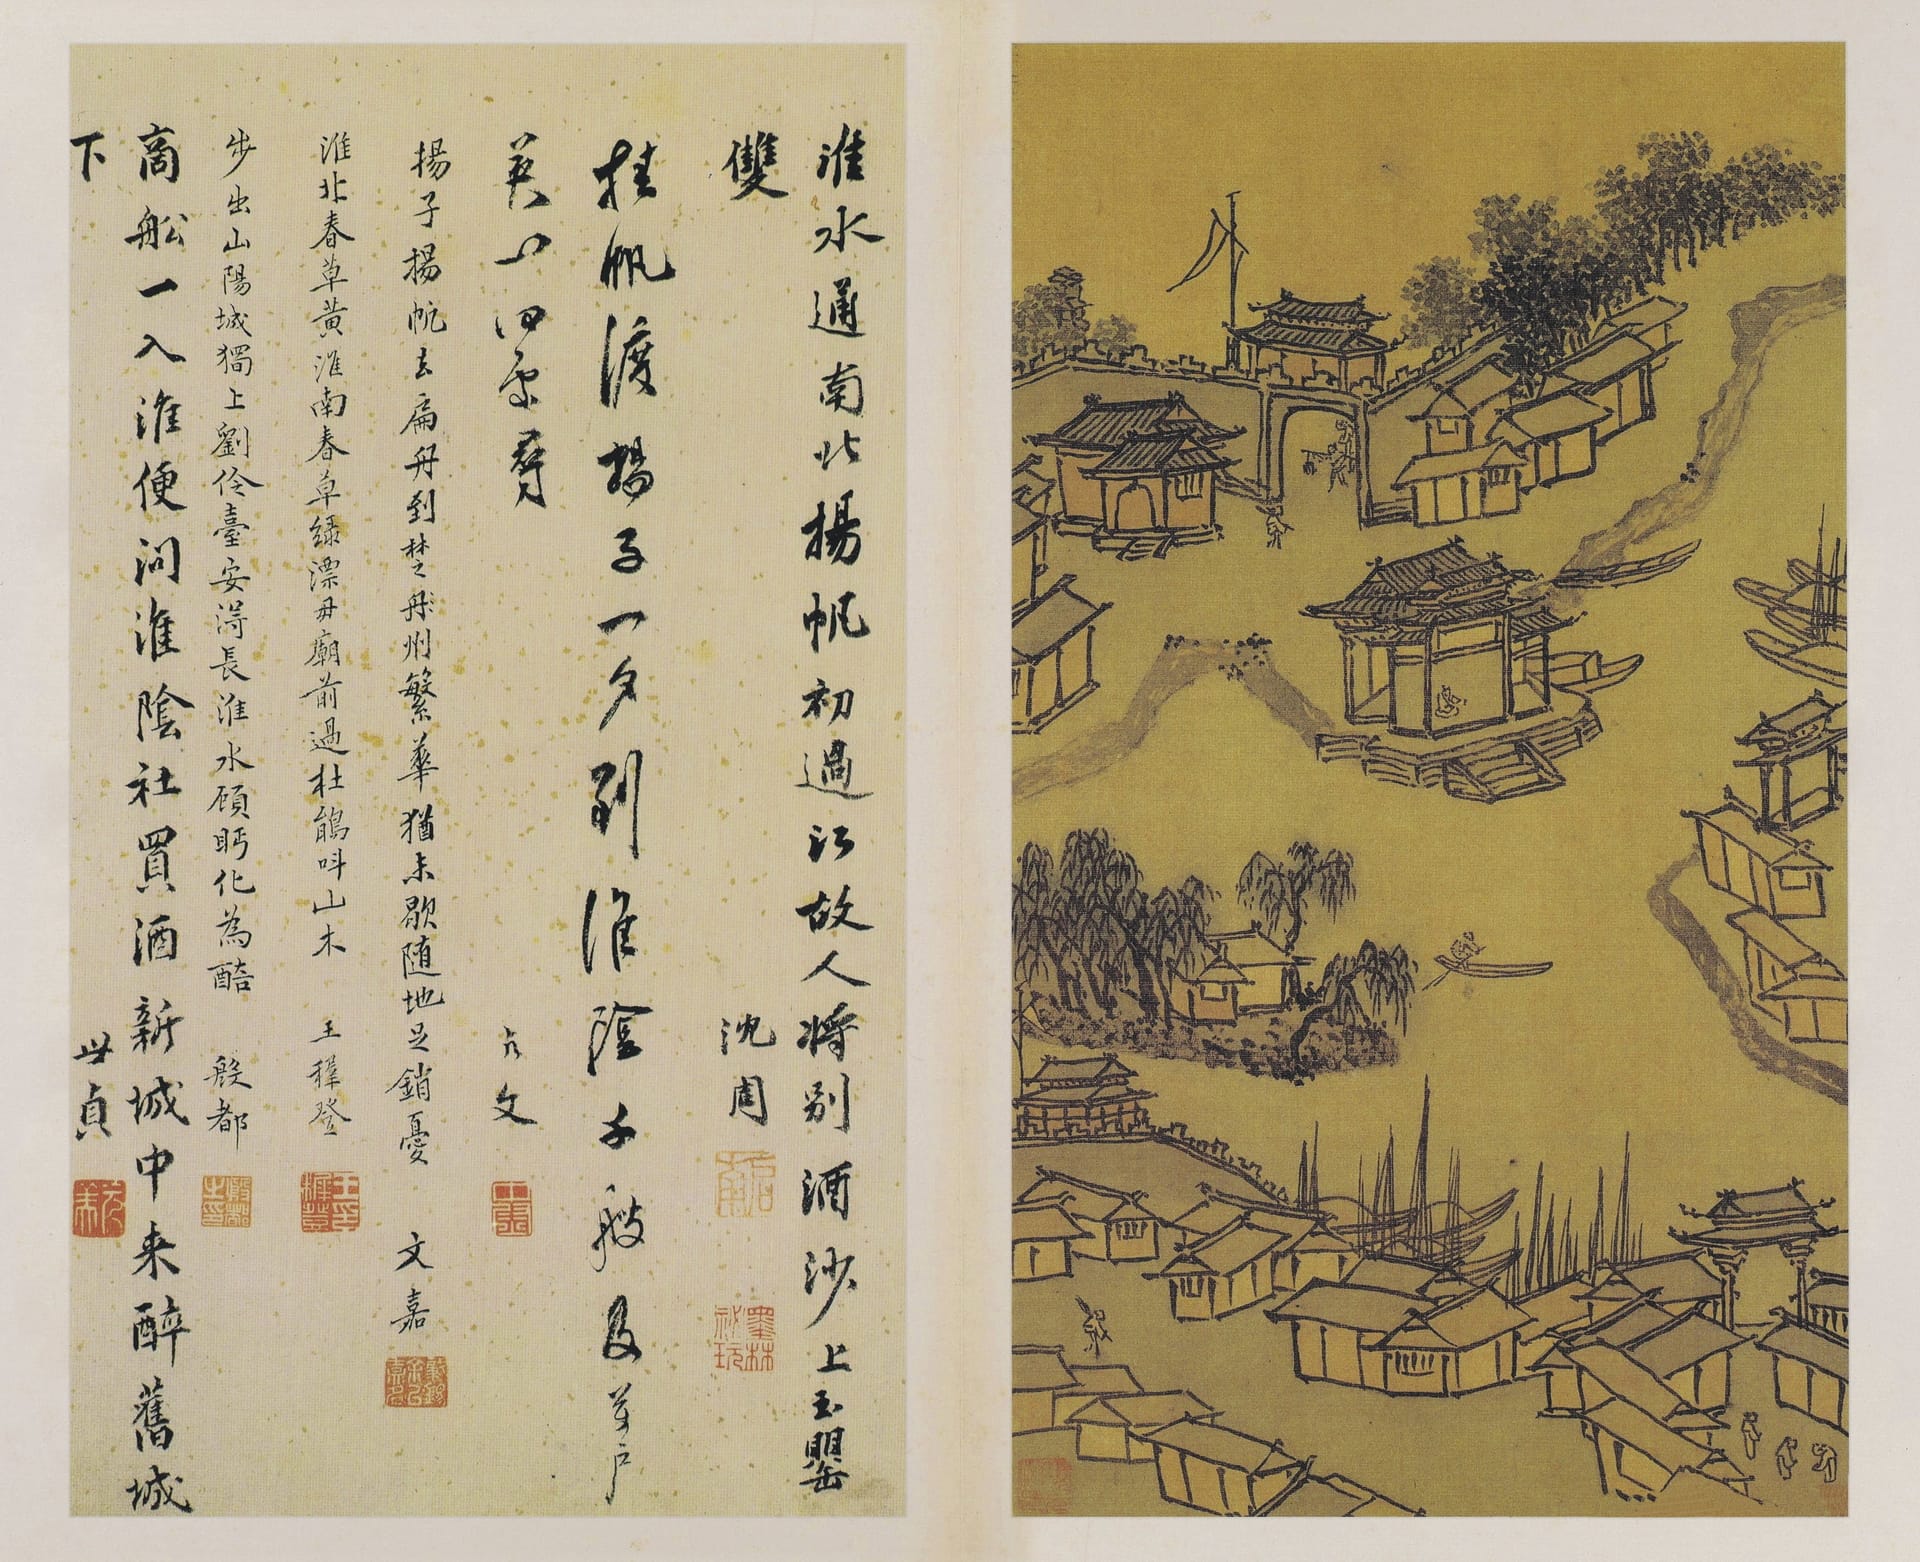 淮水通南北揚帆初過江故人將別酒沙上玉罌
雙
沈周
墨林秘玩
挂帆渡揚子一夕到淮陰千艘及萬戶
文
揚子揚帆去扁舟到楚州繁華猶未歇随地足銷憂
文嘉
淮北春草黃淮南春草綠漂母廟前過杜鵑叫山木
王穉登
王穉登印
步出山陽城獨上劉伶臺安得長淮水顧眄化為醅
殷都
殷都之印
商船一入淮便問淮陰社買酒新城中来醉舊城
下
世貞
元美